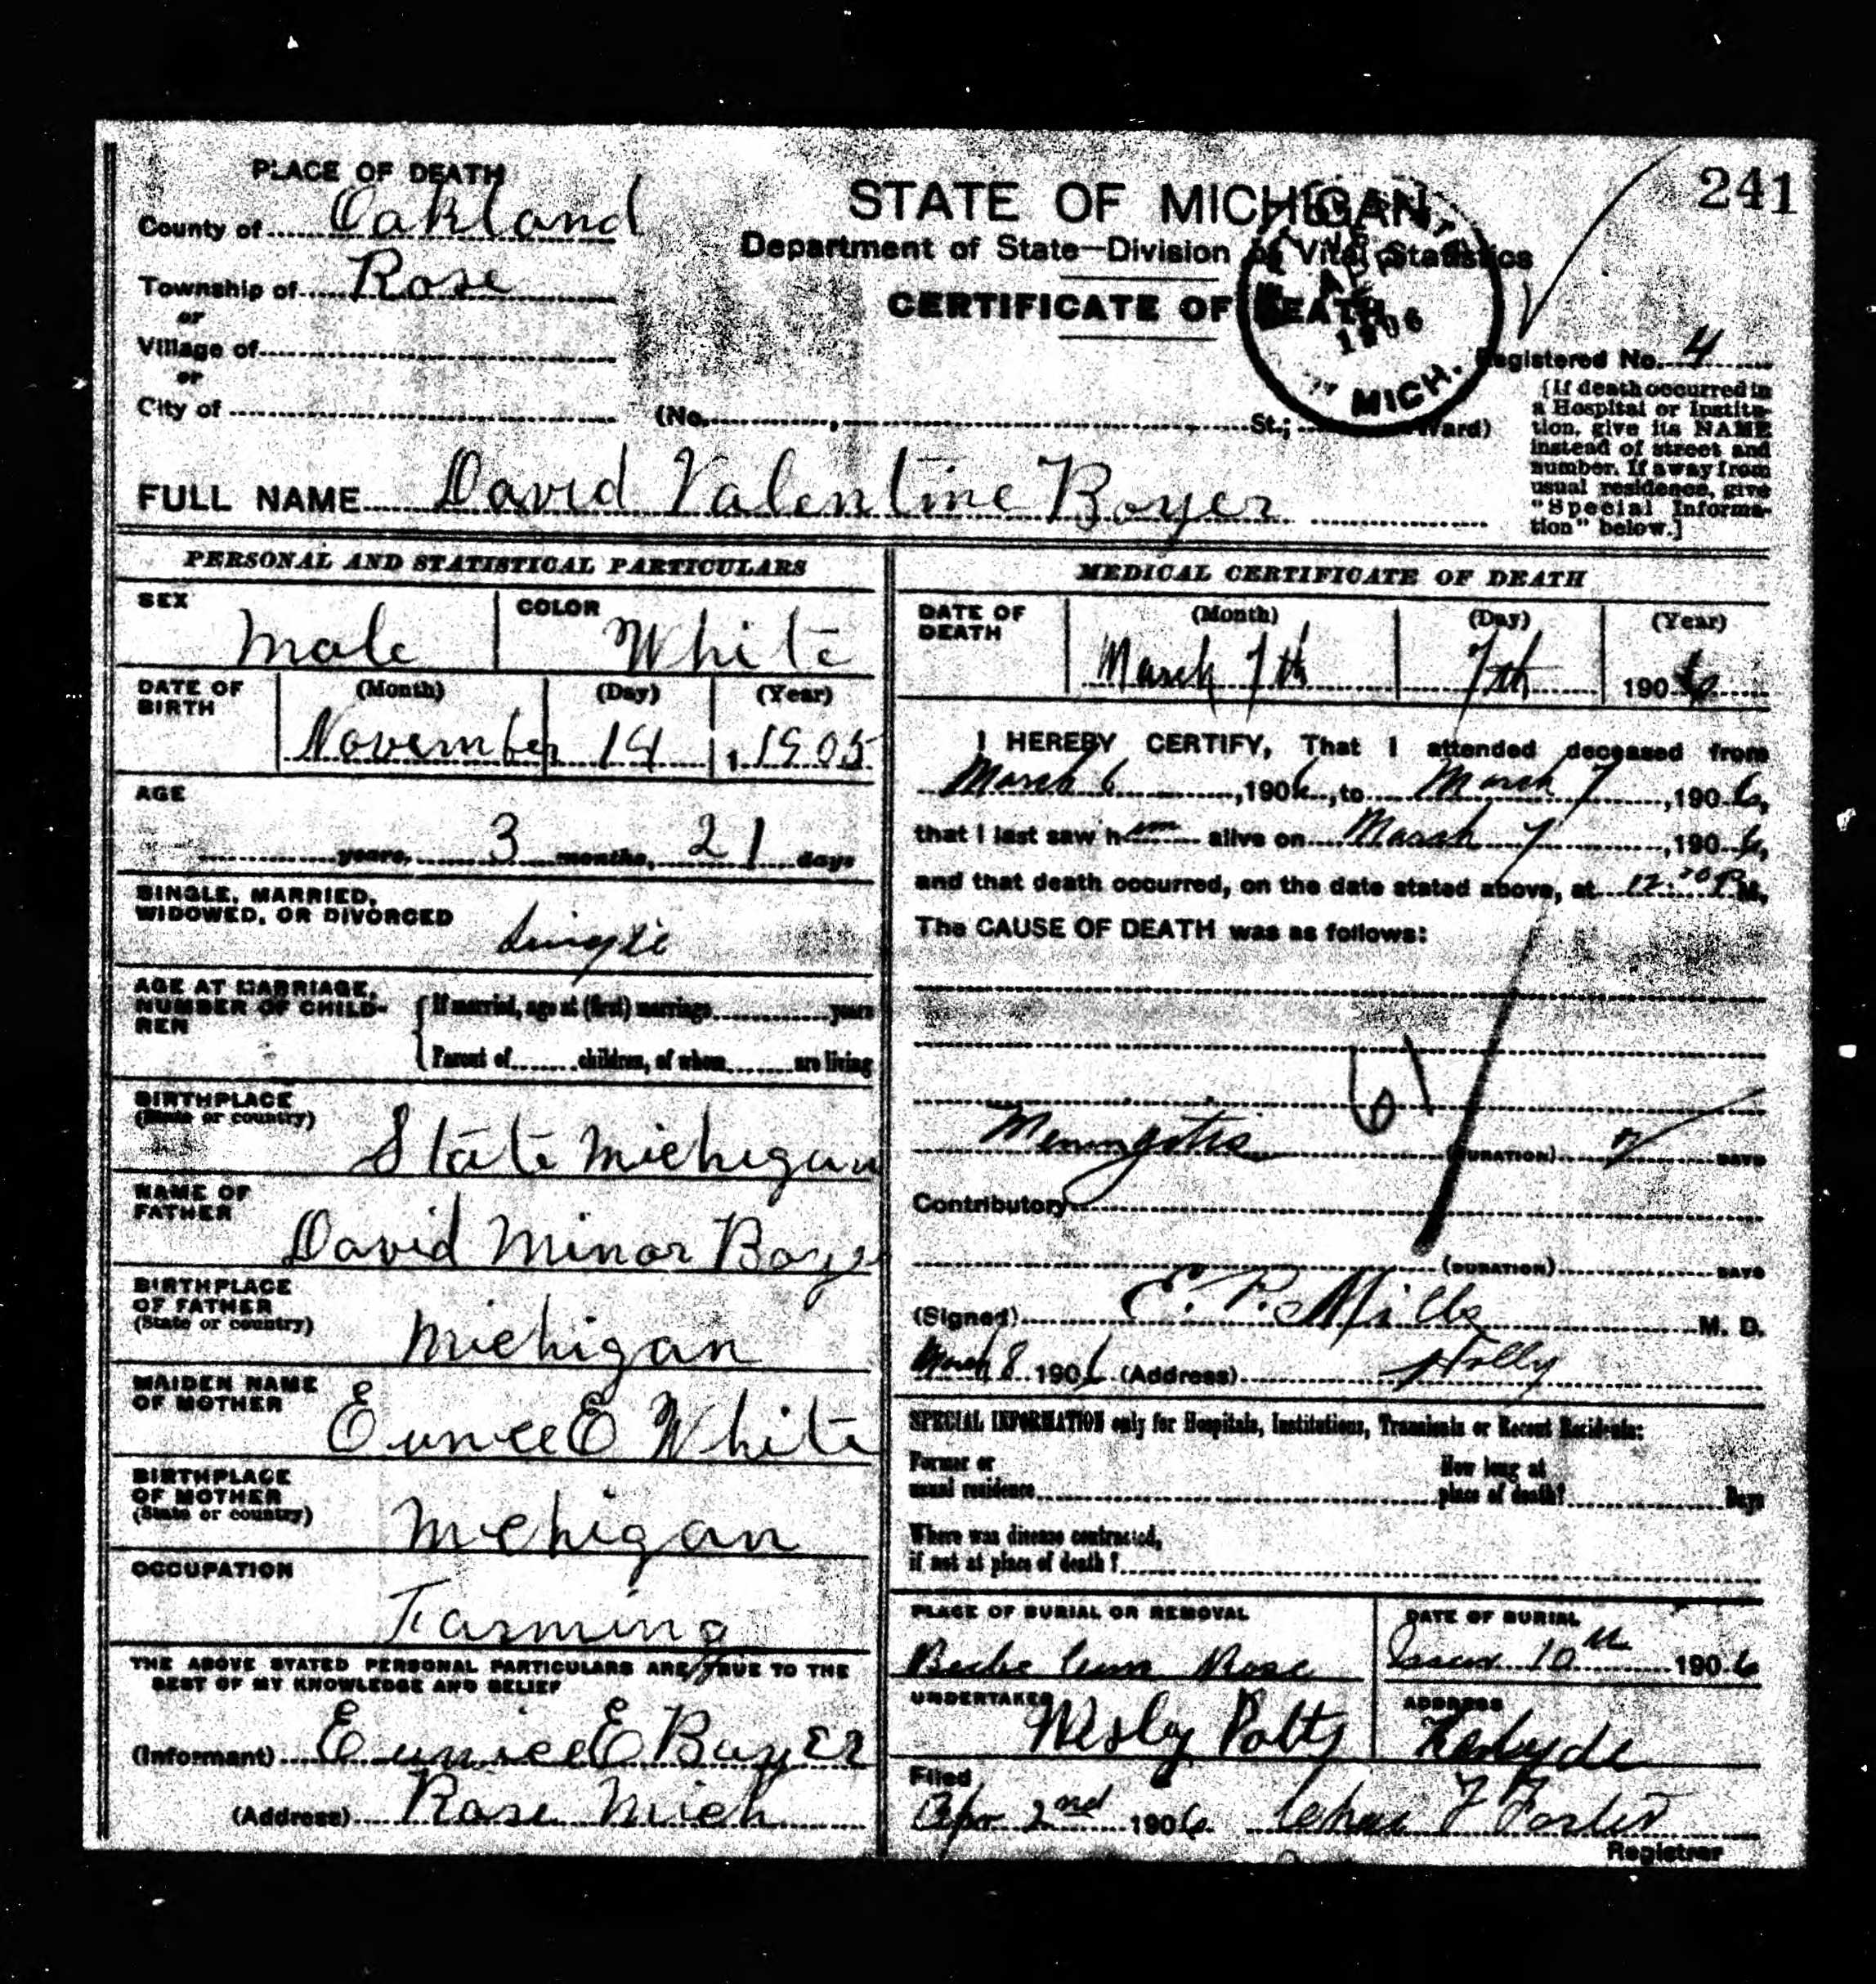 241
PLACE OF DEATH
County of Oakland
Township of Rose
or
Village of
or
City of
STATE OF MICHIGAN
Department of State—Division of Vital Statistics
CERTIFICATE OF DEATH
1906
MICH.
Registered No. 4
(No. , St.; Ward)
[If death occurred in
a Hospital or Institu-
tion, give its NAME
instead of street and
number. If away from
usual residence, give
"Special Informa-
tion" below.]
FULL NAME David Valentine Boyer
PERSONAL AND STATISTICAL PARTICULARS
SEX Male
COLOR White
DATE OF BIRTH
(Month) (Day) (Year)
November 14, 1905
AGE
years, 3 months, 21 days
SINGLE, MARRIED,
WIDOWED, OR DIVORCED Single
AGE AT MARRIAGE,
NUMBER OF CHILD-
REN
If married, age at (first) marriage years
Parent of children, of whom are living
BIRTHPLACE
(State or country)
State Michigan
NAME OF
FATHER
David Minor Boye
BIRTHPLACE
OF FATHER
(State or country)
Michigan
MAIDEN NAME
OF MOTHER
Eunice E White
BIRTHPLACE
OF MOTHER
(State or country)
Michigan
OCCUPATION
Farming
THE ABOVE STATED PERSONAL PARTICULARS ARE TRUE TO THE
BEST OF MY KNOWLEDGE AND BELIEF
(Informant) Eunice E Boyer
(Address) Rose Mich
MEDICAL CERTIFICATE OF DEATH
DATE OF DEATH
(Month) (Day) (Year)
March 7th 7th 1906
I HEREBY CERTIFY, That I attended deceased from
March 6, 1906, to March 7, 1906,
that I last saw him alive on March 7, 1906,
and that death occurred, on the date stated above, at 12:30 P M.
The CAUSE OF DEATH was as follows:
61
Meningitis (DURATION) 7 DAYS
Contributory
(DURATION) DAYS
(Signed) E. P. Mills M. D.
March 8 1906 (Address) Holly
SPECIAL INFORMATION only for Hospitals, Institutions, Transients or Recent Residents:
Former or
usual residence
How long at
place of death? Days
Where was disease contracted,
if not at place of death?
PLACE OF BURIAL OR REMOVAL
Rose
DATE OF BURIAL
10th 1906
UNDERTAKER
Wesley Potts
ADDRESS
Filed
Apr 2nd 1906 Chas F Foster
Registrar